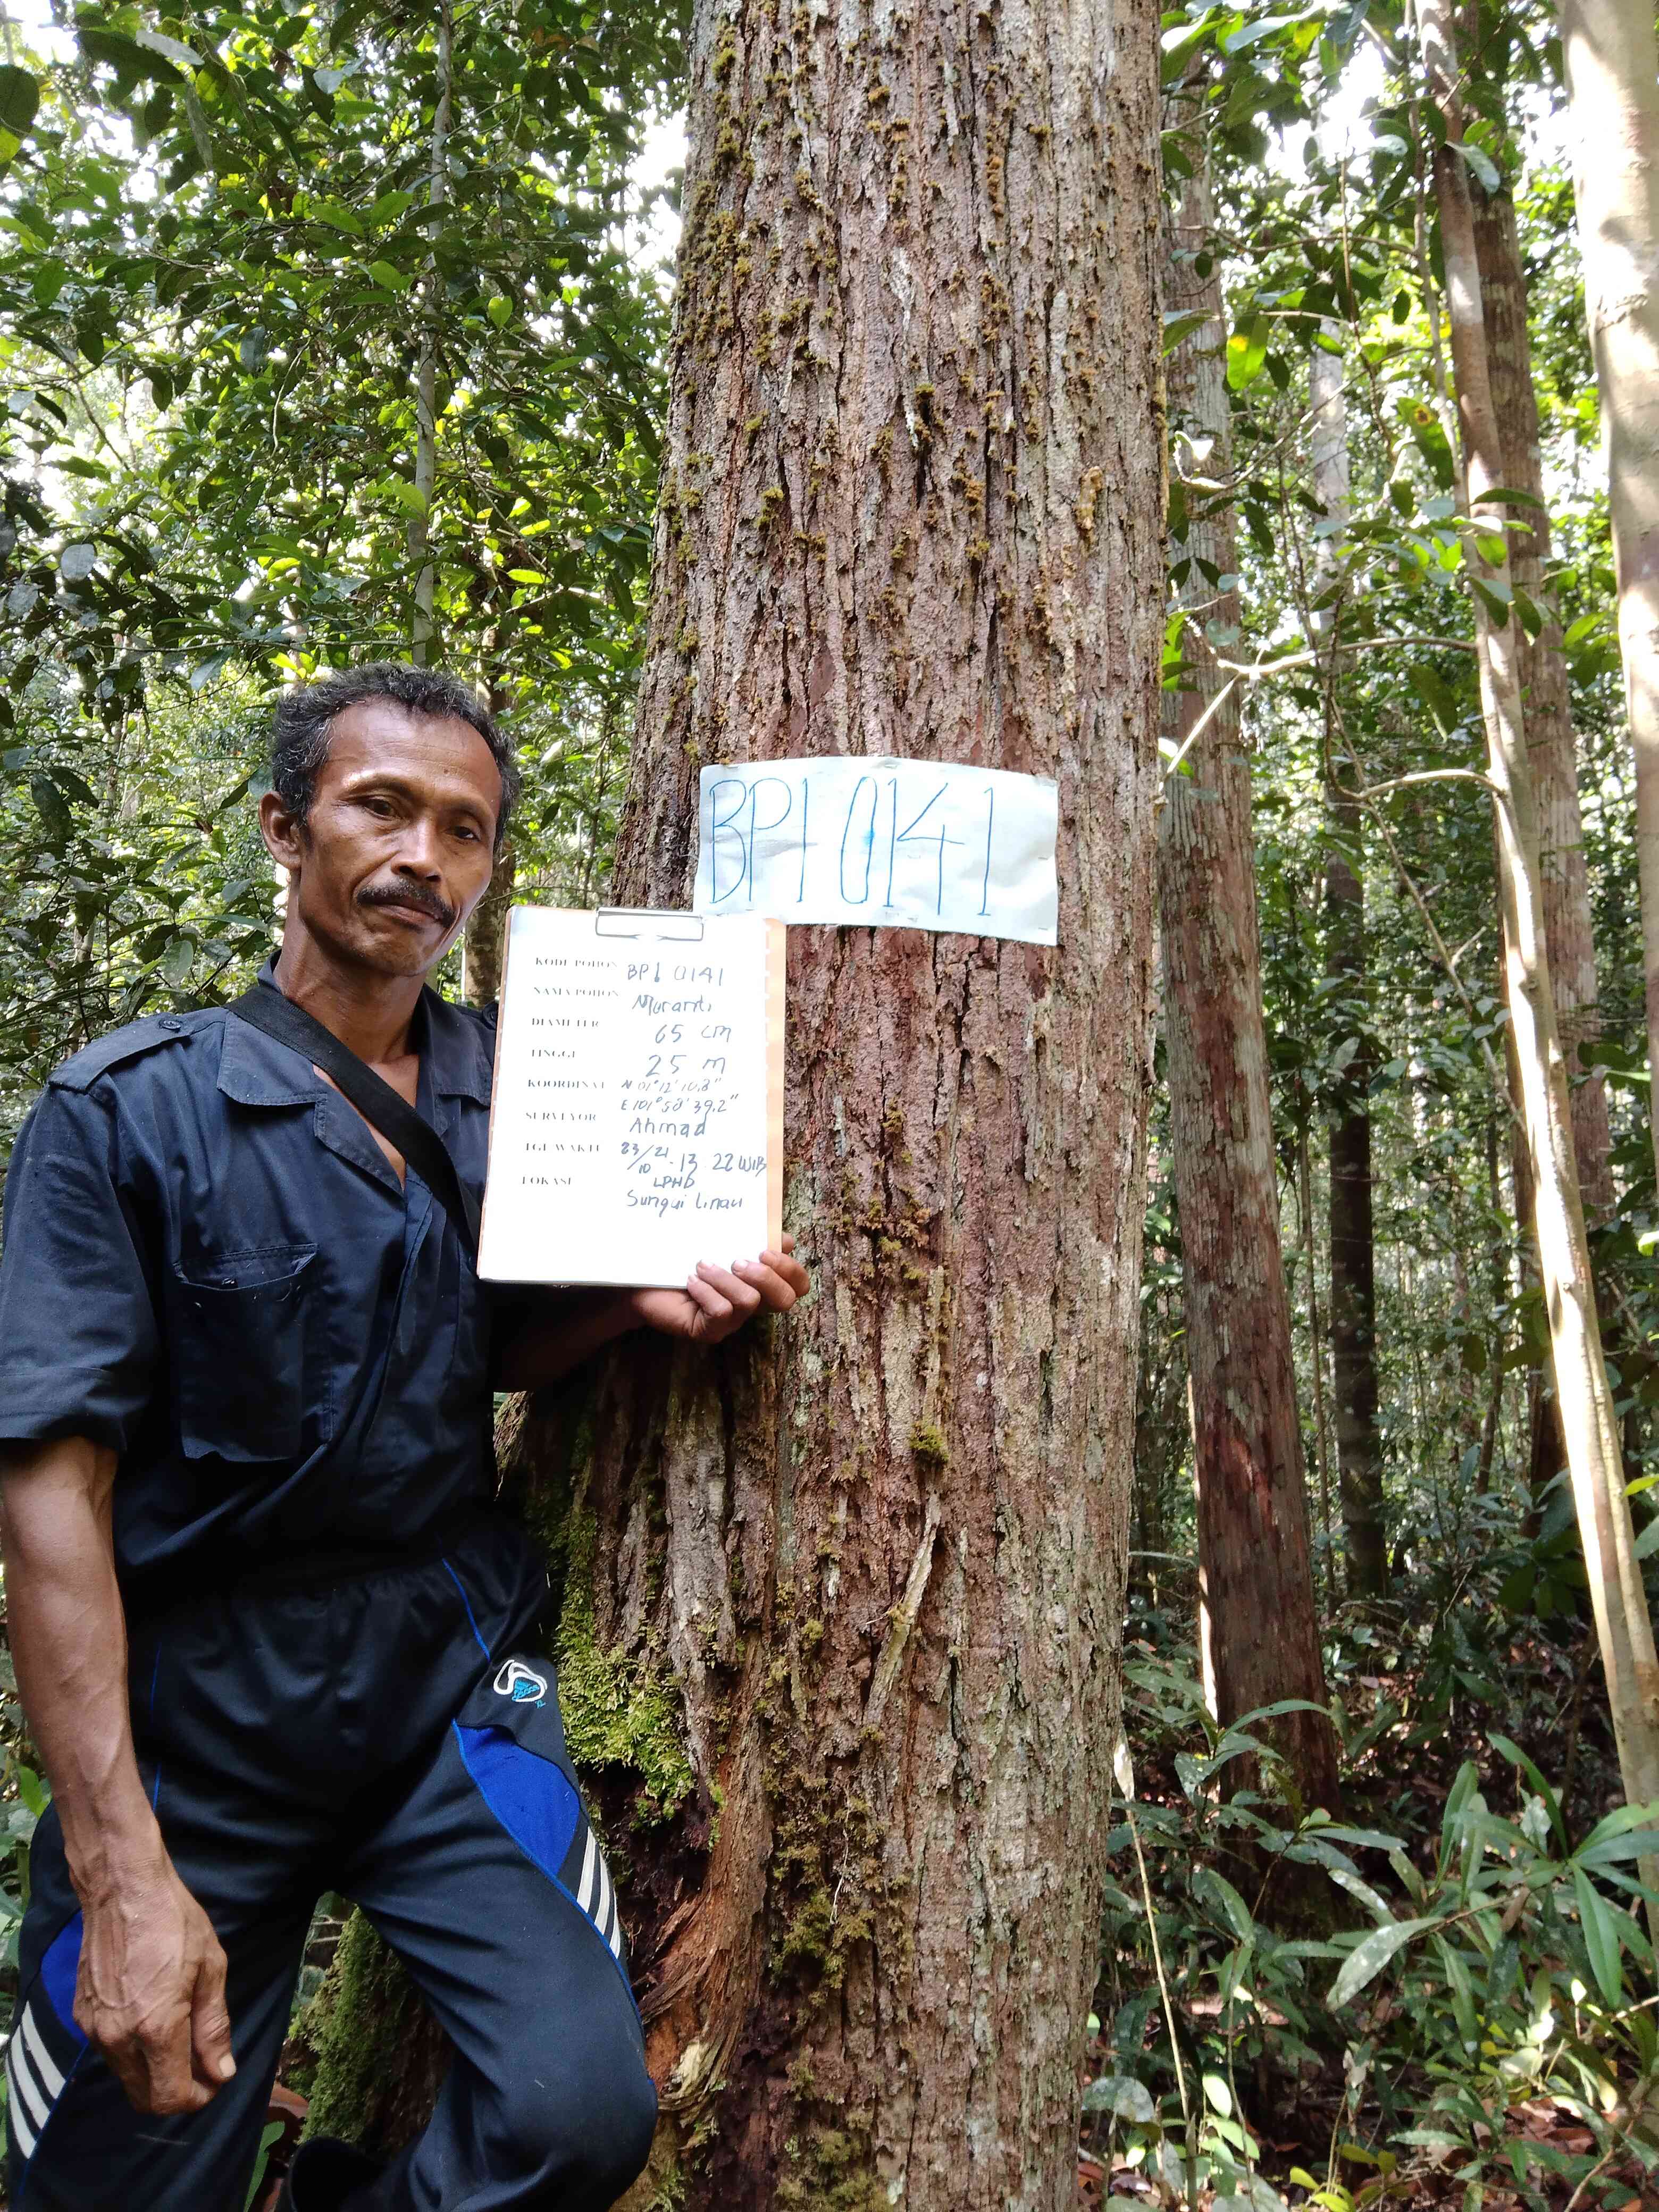 BPI 0141
KODE POHON BPI 0141
NAMA POHON Muranti
DIAMETER 65 cm
TINGGI 25 m
KOORDINAT N 01°12'10.8"
E 101°58'39.2"
SURVEYOR Ahmad
TGL WAKTU 23/10 21 . 13 . 22 WIB
LOKASI LPHD
Sungai Linau